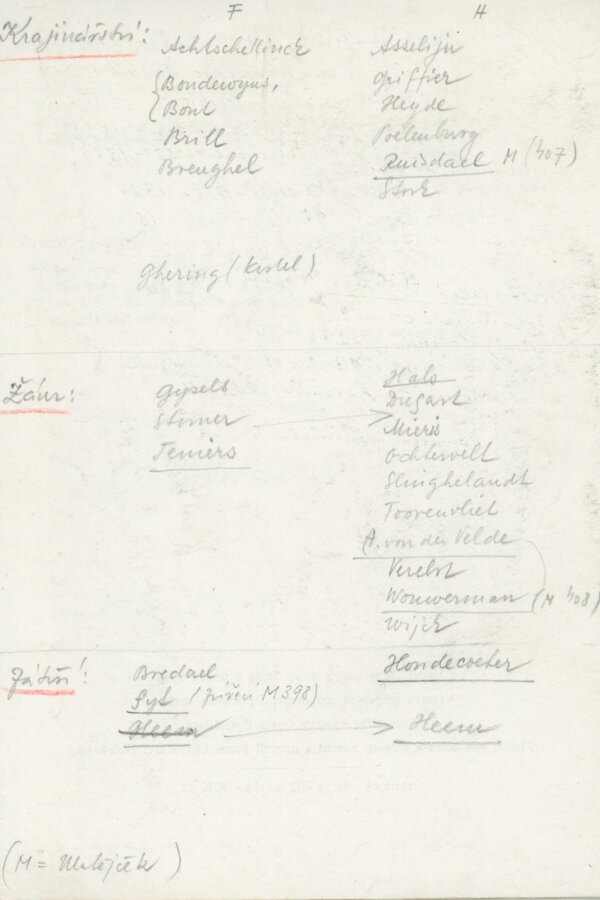 F H
Krajinářství:
Achtschellinck Asselijn
Boudewyns, Griffier
Bout Heyde
Brill Poelenburg
Breughel Ruisdael M (407)
Stork
Ghering (kostel)
Hals
Žánr: Gysels Diegart
Sterner Mieris
Teniers Ochtervelt
Slinghelandt
Toorenvliet
A. van der Velde
Verelst
Wouwerman (M 408)
Wijck
Zátiší: Bredael Hondecoeter
Fyt (M 398)
Heem Heem
(M = Matějček)